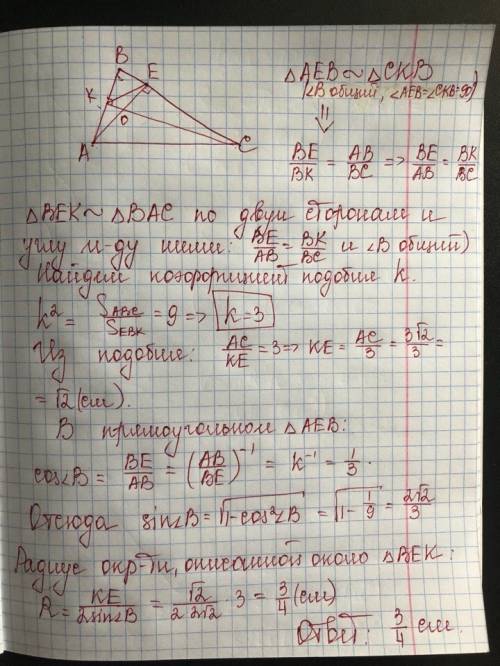 B
E
K
O
A
C
△AEB ~ △CKB
(∠B общий, ∠AEB=∠CKB=90°)
⇓
BE/BK = AB/BC => BE/AB = BK/BC
△BEK ~ △BAC по двум сторонам и
углу м-ду ними: BE/AB = BK/BC и ∠B общий)
Найдём коэффициент подобия k.
k² = S_ABC/S_EBK = 9 => k=3
Из подобия: AC/KE = 3 => KE = AC/3 = 3√2/3 =
= √2 (см).
В прямоугольном △AEB:
cos∠B = BE/AB = (AB/BE)⁻¹ = k⁻¹ = 1/3.
Отсюда sin∠B = √1-cos²∠B = √1-1/9 = 2√2/3
Радиус окр-ти, описанной около △BEK:
R = KE/2sin∠B = √2/2·2√2 · 3 = 3/4 (см)
Ответ: 3/4 см.